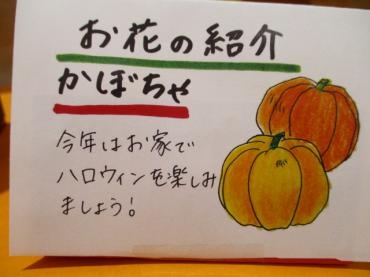 お花の紹介
かぼちゃ
今年はお家で
ハロウィンを楽しみ
ましょう!